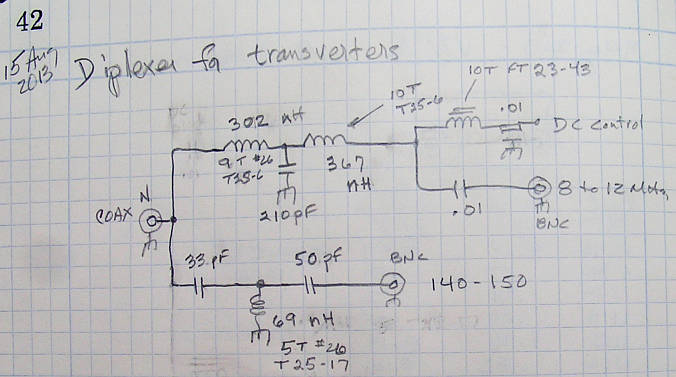 42
15 Aug
2013
Diplexer for transverters
10T FT 23-43
10T
T25-6
.01
DC control
302 nH
9T #26
T25-6
367
nH
210pF
N
COAX
.01
8 to 12 MHz
BNC
33pF
50pf
BNC
140-150
69 nH
5T #26
T25-17